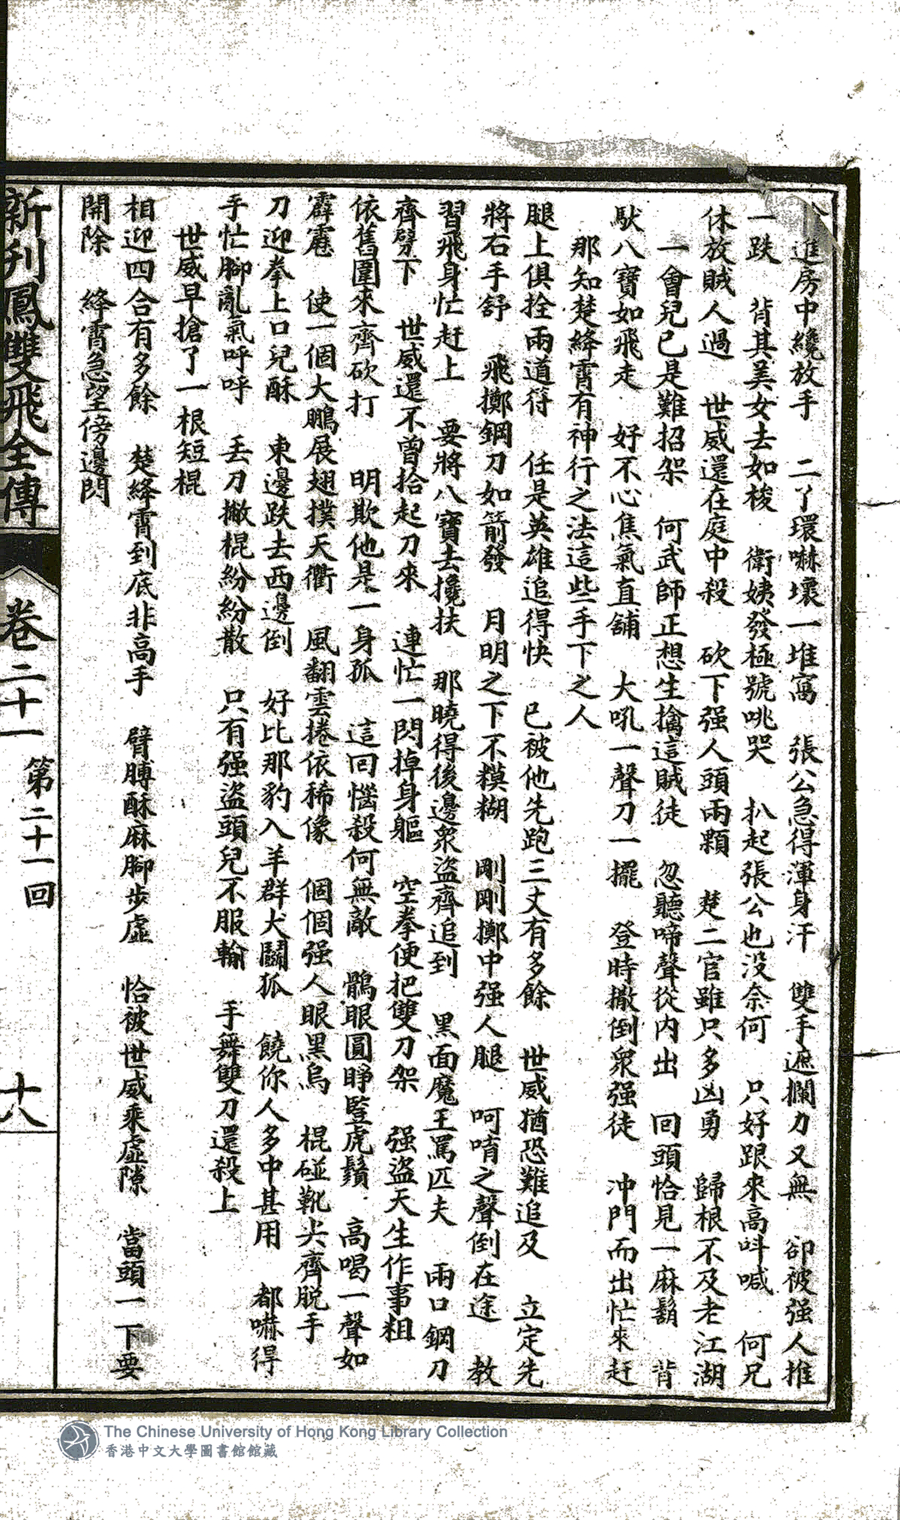 進房中纔放手　二丫環嚇壞一堆窩　張公急得渾身汗　雙手遮攔力又無　卻被强人推
一跌　背其美女去如梭　衛姨發極號咷哭　扒起張公也没奈何　只好跟來高呌喊　何兄
休放賊人過　世威還在庭中殺　砍下强人頭兩顆　楚二官雖只多凶勇　歸根不及老江湖
一會兒已是難招架　何武師正想生擒這賊徒　忽聽啼聲從内出　回頭恰見一麻鬍　背
馱八寶如飛走　好不心焦氣直舖　大吼一聲刀一擺　登時撒倒衆强徒　冲門而出忙來赶
那知楚絳霄有神行之法這些手下之人
腿上俱拴兩道符　任是英雄追得快　已被他先跑三丈有多餘　世威猶恐難追及　立定先
將石手舒　飛擲鋼刀如箭發　月明之下不糢糊　剛剛擲中强人腿　呵唷之聲倒在途　教
習飛身忙赶上　要將八寶去攙扶　那曉得後邊衆盜齊追到　黑面魔王罵匹夫　兩口鋼刀
齊劈下　世威還不曾拾起刀來　連忙一閃掉身軀　空拳便把雙刀架　强盜天生作事粗
依舊圍來齊砍打　明欺他是一身孤　這回惱殺何無敵　鶻眼圓睜監虎鬚　高喝一聲如
霹靂　使一個大鵬展翅撲天衢　風翻雲捲依稀像　個個强人眼黑烏　棍碰靴尖齊脱手
刀迎拳上口兒酥　東邊跌去西邊倒　好比那豹入羊群犬鬬狐　饒你人多中甚用　都嚇得
手忙腳亂氣呼呼　丢刀撇棍紛紛散　只有强盜頭兒不服輸　手舞雙刀還殺上
世威早搶了一根短棍
相迎四合有多餘　楚絳霄到底非高手　臂膊酥麻腳步虛　恰被世威乘虛隙　當頭一下要
開除　絳霄急望傍邊閃
新刋鳳雙飛全傳　卷二十一　第二十一回　十八
The Chinese University of Hong Kong Library Collection
香港中文大學圖書館館藏